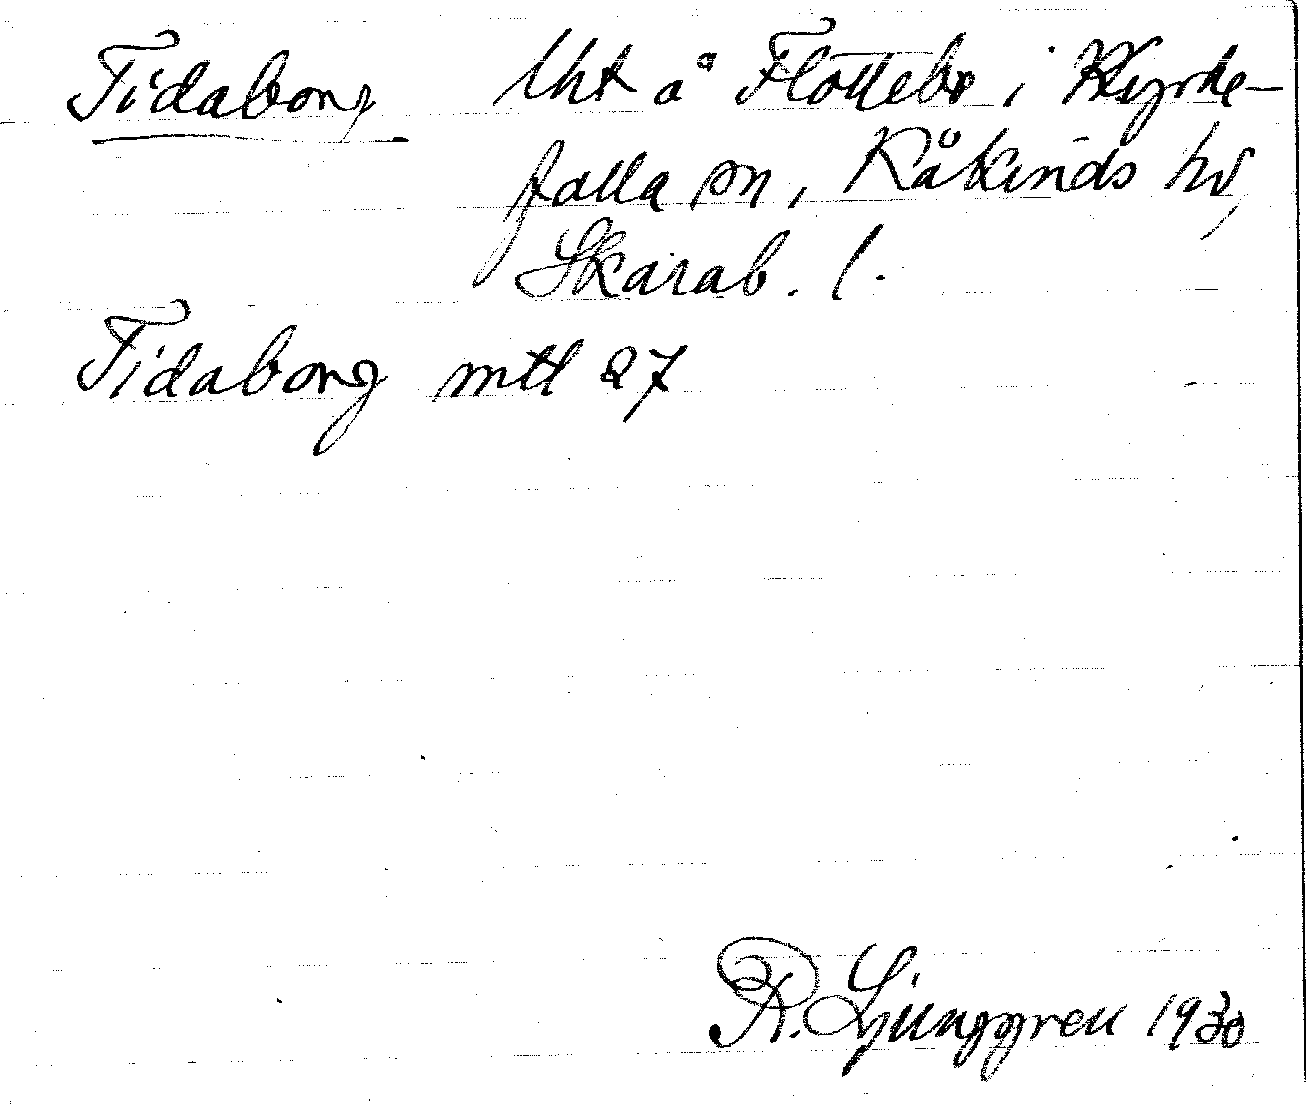 Tidabong Uht å Flöttebo i Kyrke-
falla sn, Kåkinds hd,
Skarab. l.
Tidabong mtl 27
R. Ljunggren 1930